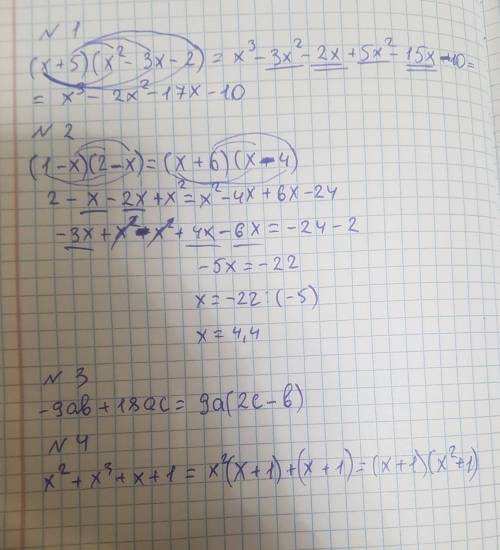 N 1
(x+5)(x²-3x-2) = x³-3x²-2x+5x²-15x-10=
= x³-2x²-17x-10
N 2
(1-x)(2-x)=(x+6)(x-4)
2-x-2x+x²=x²-4x+6x-24
-3x+x²-x²+4x-6x=-24-2
-5x=-22
x=-22:(-5)
x=4,4
N 3
-9ab+18ac=9a(2c-b)
N 4
x²+x³+x+1=x²(x+1)+(x+1)=(x+1)(x²+1)